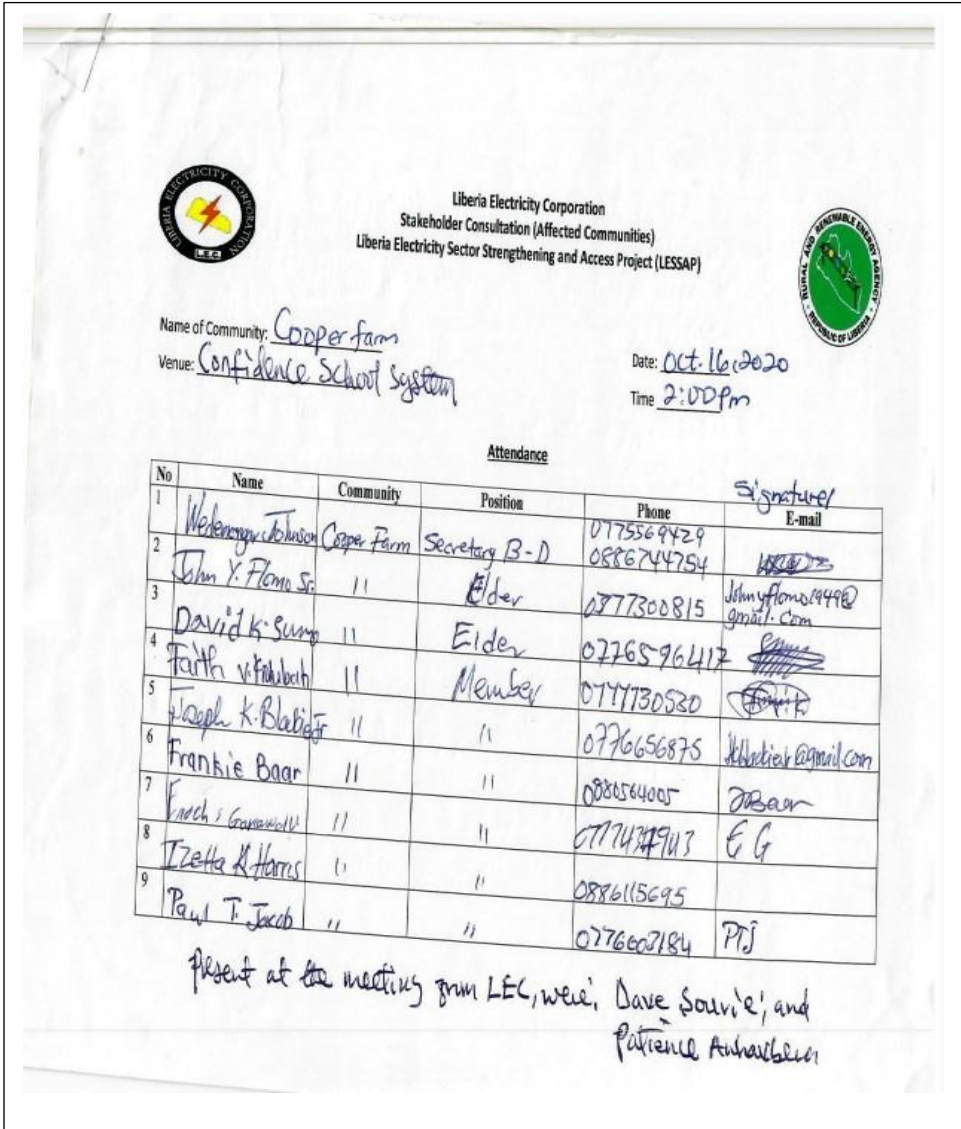 LIBERIA ELECTRICITY CORPORATION
L.E.C.
Liberia Electricity Corporation
Stakeholder Consultation (Affected Communities)
Liberia Electricity Sector Strengthening and Access Project (LESSAP)
RURAL AND RENEWABLE ENERGY AGENCY
REPUBLIC OF LIBERIA
Name of Community: Cooper farm
Venue: Confidence School System
Date: Oct. 16, 2020
Time 2:00Pm
Attendance
Signature/
No Name Community Position Phone E-mail
1 Johnson Cooper Farm Secretary B-D 0775569429
0886744754
2 John Y. Flomo Sr. 11 Elder 0377300815 Johnyflomo1949@
gmail.com
3 David K. Sumo 11 Elder 0776596417
4 Faith V. 11 Member
5 Joseph K. Blabie Jr 11 11 0776656875
6 Frankie Baar 11 11 0880564005
7 Enoch 11 11 E G
8 Izetta K Harris 11 11 0886115695
9 Paul T. Jacob 11 11 0776603184 PTJ
Present at the meeting from LEC, were, Dave and
Patience